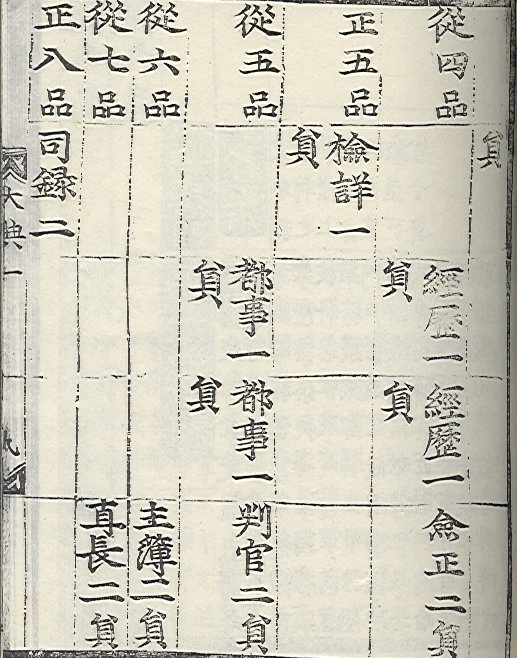 貟
從四品
經歷一
貟
經歷一
貟
僉正二貟
正五品
檢詳一
貟
從五品
都事一
貟
都事一
貟
判官二貟
從六品
主簿二貟
從七品
直長二貟
正八品
司錄二
大典一